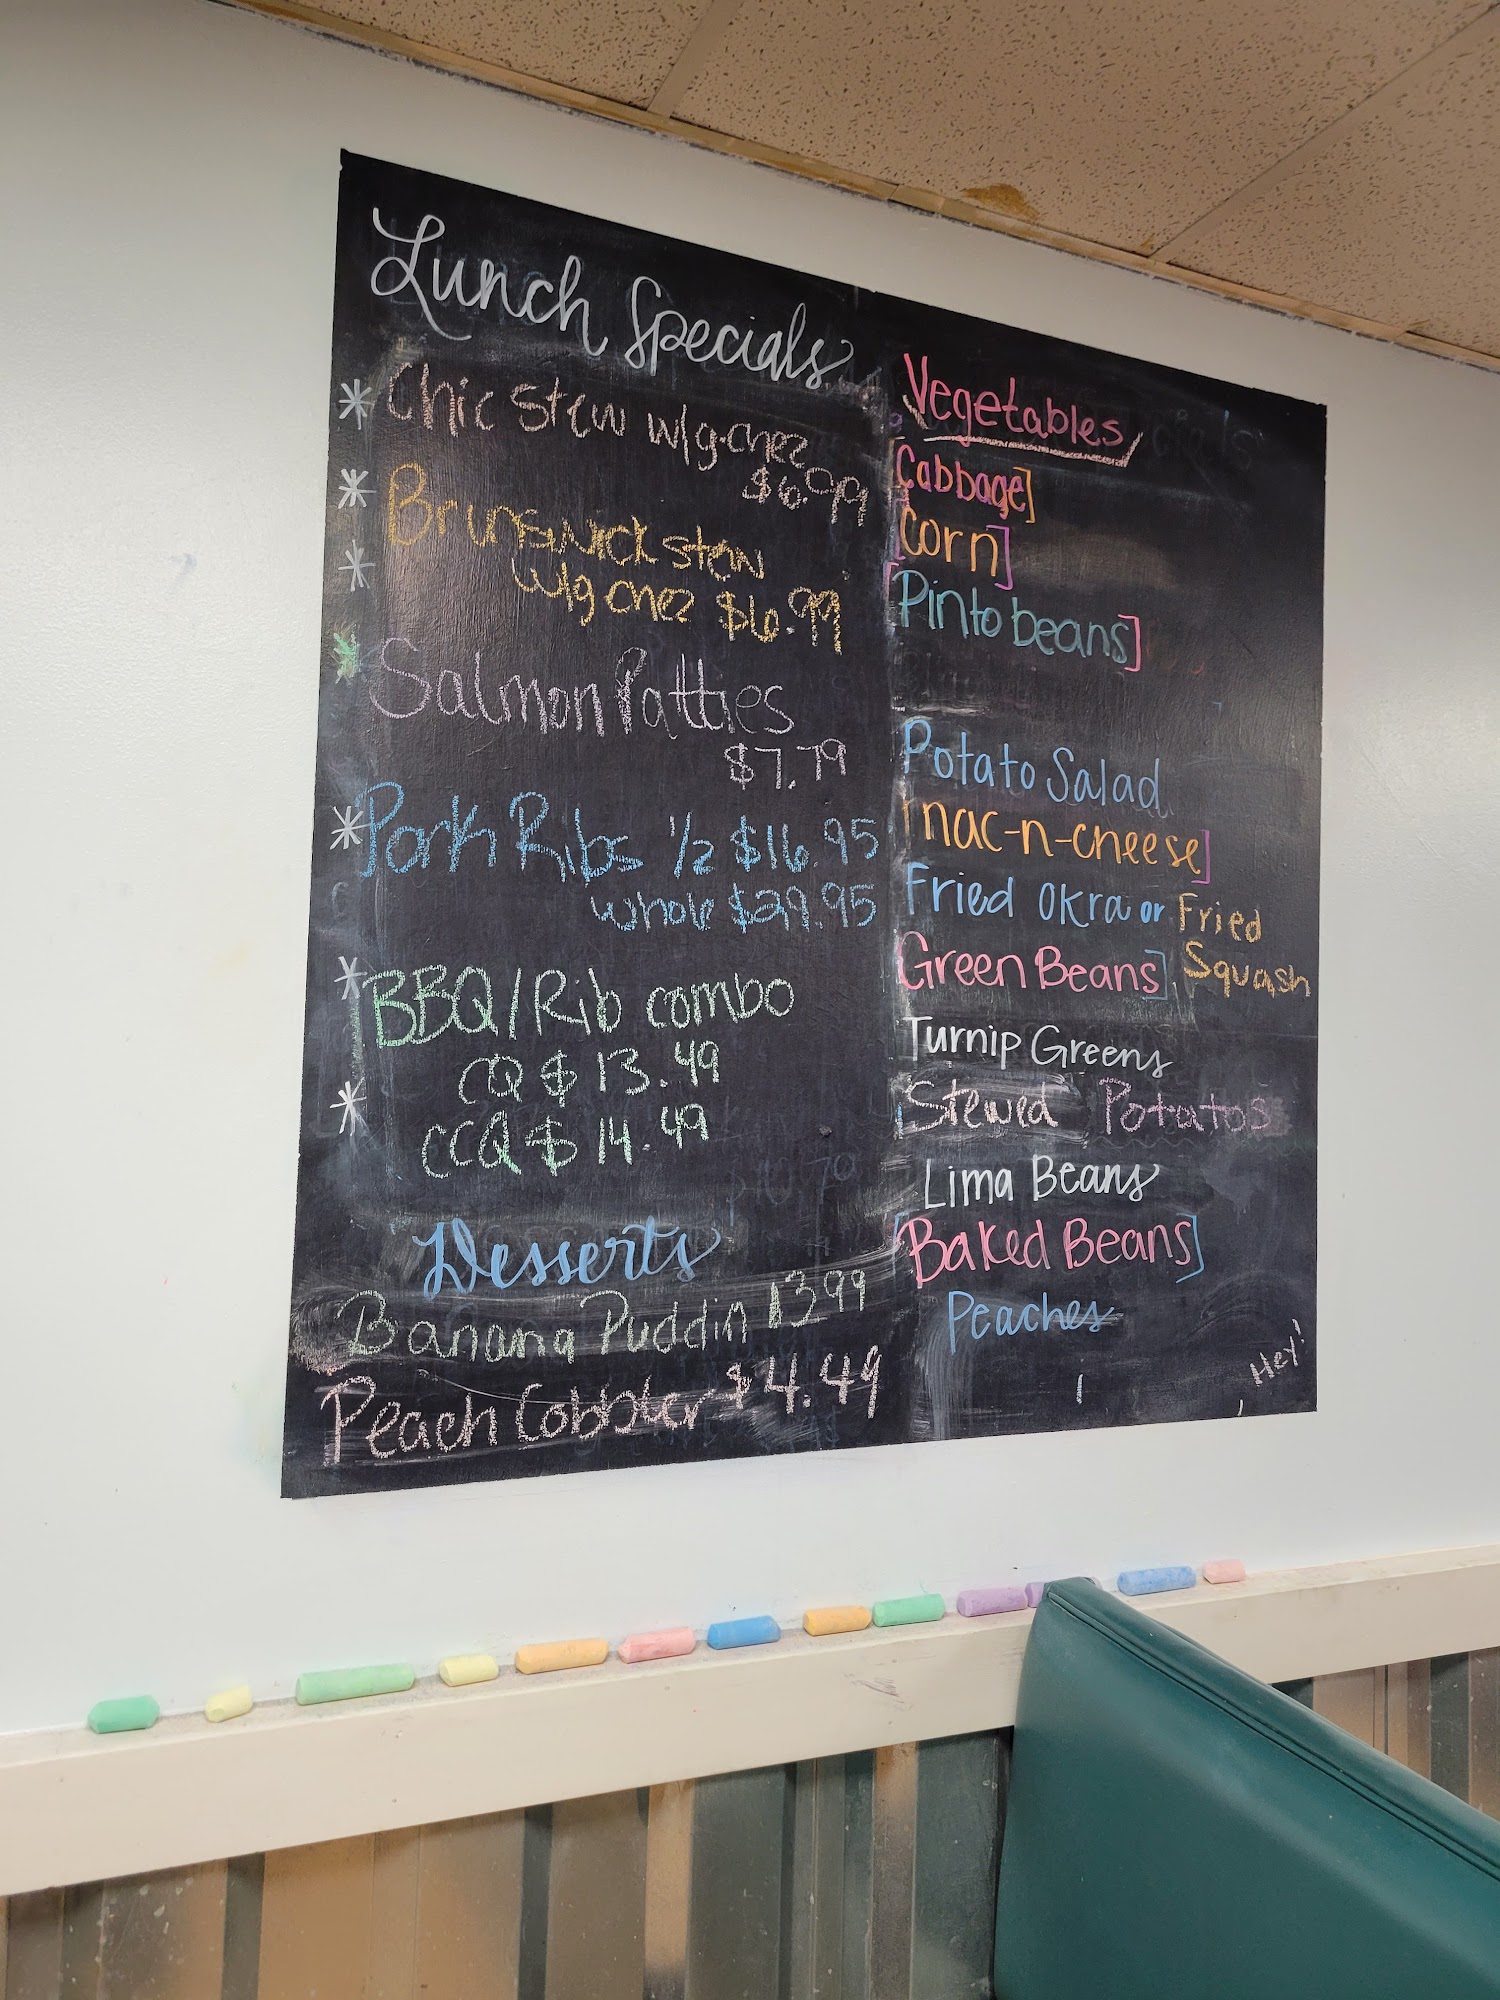 Lunch Specials
* Chic Stew w/g-chez
$6.99
* Brunswick stew
* w/g chez $6.99
Salmon Patties
$7.79
* Pork Ribs 1/2 $16.95
whole $29.95
* BBQ/Rib combo
CQ $13.49
* CCQ $14.49
Desserts
Banana Puddin $3.99
Peach Cobbler $4.49
Vegetables
[Cabbage]
[Corn]
[Pinto beans]
Potato Salad
[mac-n-cheese]
Fried Okra or Fried
Squash
[Green Beans]
Turnip Greens
Stewed Potatos
Lima Beans
[Baked Beans]
Peaches
Hey!